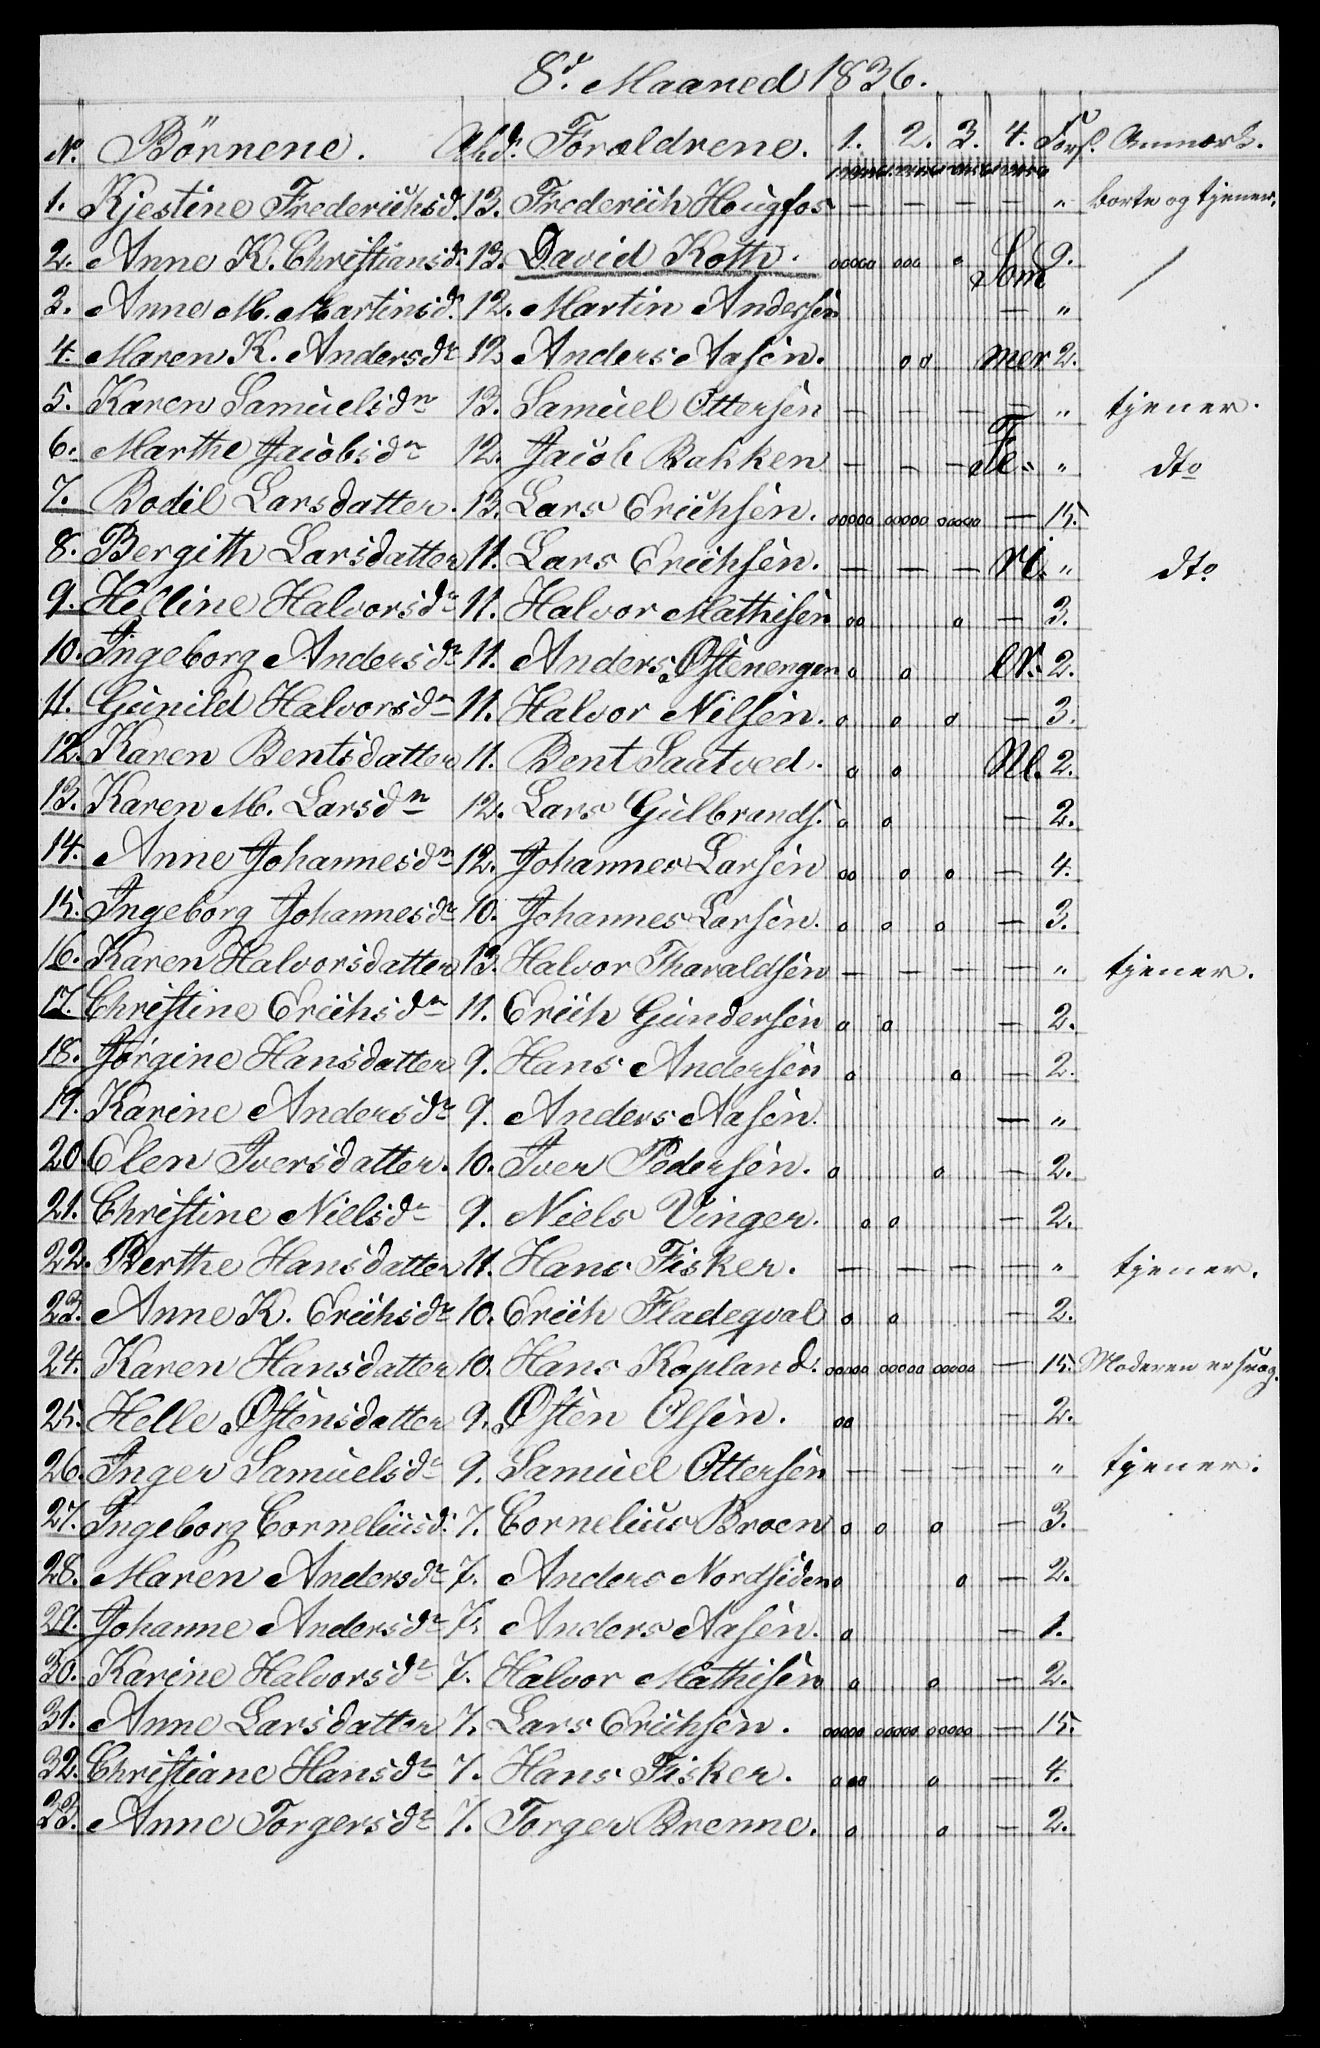 8d. Maaned 1836.
No. Börnene. Ald. Forældrene. 1. 2. 3. 4. Fors. Anmærk.
1. Kjestine Frederichsd. 13. Frederich Hougfos — — — — " borte og tjener.
2. Anne K. Christiansd. 13. David Koth. ooooo ooo o Som 9. /
3. Anne M. Martinsd. 12. Martin Andersen — "
4. Maren K. Andersdr 12 Anders Aasen. oo mer 2.
5. Karen Samuelsdr 13. Samuel Ottersen — — — — " tjener.
6. Marthe Jacobsdr 12. Jacob Bakken — — — Fe- " dto
7. Bodil Larsdatter. 13. Lars Erichsen. ooooo ooooo ooooo — 15.
8. Bergith Larsdatter 11. Lars Erichsen. — — — ri. " dto
9. Helline Halvorsdr 11. Halvor Mathisen oo o — 3.
10. Ingeborg Andersdr 11. Anders Ostenengen o o er. 2.
11. Gunild Halvorsdr 11. Halvor Nilsen. o o o — 3.
12. Karen Bentsdatter 11. Bent Saatved. o o 2.
13. Karen M. Larsdr 12. Lars Gulbrands. o o — 2.
14. Anne Johannesdr 12. Johannes Larsen oo o o — 4.
15. Ingeborg Johannesdr 10. Johannes Larsen. o o o — 3.
16. Karen Halvorsdatter 13. Halvor Tharaldsen — — — — " tjener.
17. Christine Erichsdr 11. Erich Gundersen o o — 2.
18. Jørgine Hansdatter 9. Hans Andersen o o — 2.
19. Karine Andersdr 9. Anders Aasen. — "
20. Elen Iversdatter. 10. Iver Pedersen. o o — 2.
21. Christine Nielsdr 9. Niels Vinger. o o — 2.
22. Berthe Hansdatter 11. Hans Fisker. — — — — " tjener.
23. Anne K. Erichsdr 10. Erich Fladeqval o o — 2.
24. Karen Hansdatter 10. Hans Kopland. ooooo ooooo ooooo — 15. Moderen er svag.
25. Helle Ostensdatter 9. Osten Olsen. oo — 2.
26. Inger Samuelsdr 9. Samuel Ottersen — — — — " tjener.
27. Ingeborg Corneliusd. 7. Cornelius Broen o o o — 3.
28. Maren Andersdr 7. Anders Nordsiden o o — 2.
29. Johanne Andersdr 7. Anders Aasen. o — 1.
30. Karine Halvorsdr 7. Halvor Mathisen o o — 2.
31. Anne Larsdatter 7. Lars Erichsen. ooooo ooooo ooooo — 15.
32. Christiane Hansdr 7. Hans Fisker. ooo o — 4.
33. Anne Torgersdr 7. Torger Brenne. o o — 2.